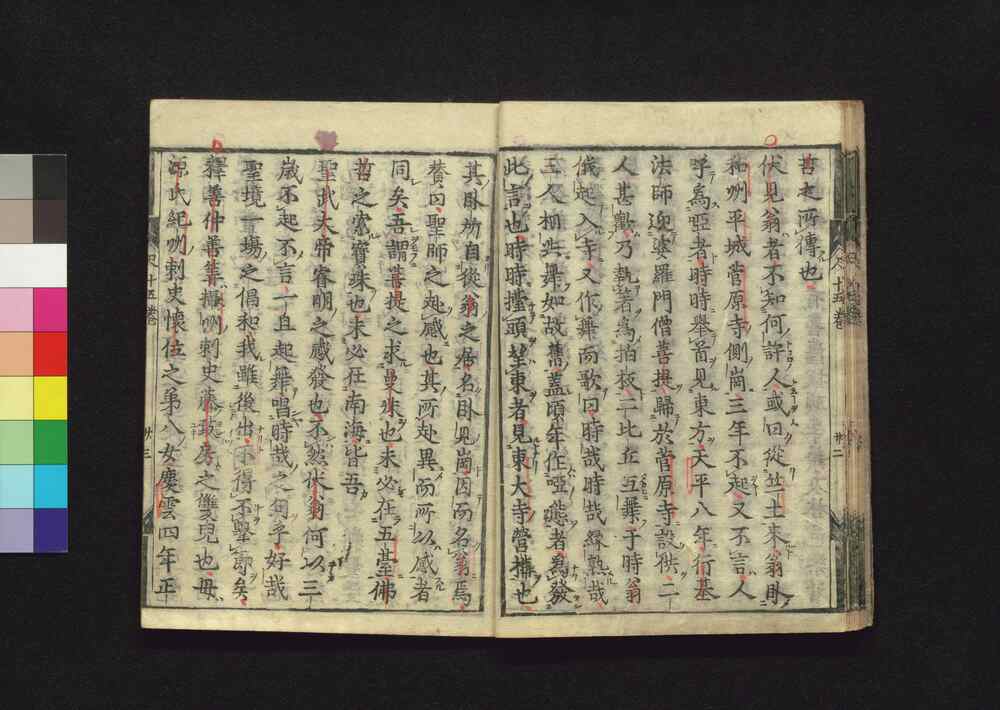 吉之所傳也
伏見翁者不知何許人或曰從竺土來翁臥
和州平城菅原寺側崗三年不起又不言人
呼爲啞者時時擧首見東方天平八年行基
法師迎婆羅門僧菩提歸於菅原寺設供二
人甚歡乃執箸爲拍板二比丘互舞于時翁
儀起入寺又作舞而歌曰時哉時哉緣熟哉
三人相共舞如故舊蓋頃年作啞態者爲發
此言也時時擡頭望東者見東大寺營構也
其臥所自從翁之居名臥見崗因而名翁焉
贊曰聖師之赴感也其所赴異而所以感者
同矣吾謂菩提之求曼殊也未必在五臺佛
哲之索寶珠也未必在南海皆吾
聖武大帝睿明之感發也不然伏翁何以三
歲不起不言一旦起舞唱時哉之句乎好哉
聖境一場之倡和我雖後出不得不擊節矣
釋善仲善算攝州刺史藤致房之雙兒也母
源氏紀州刺史懷信之第八女慶雲四年正
十五卷
廿二
十五卷
廿三